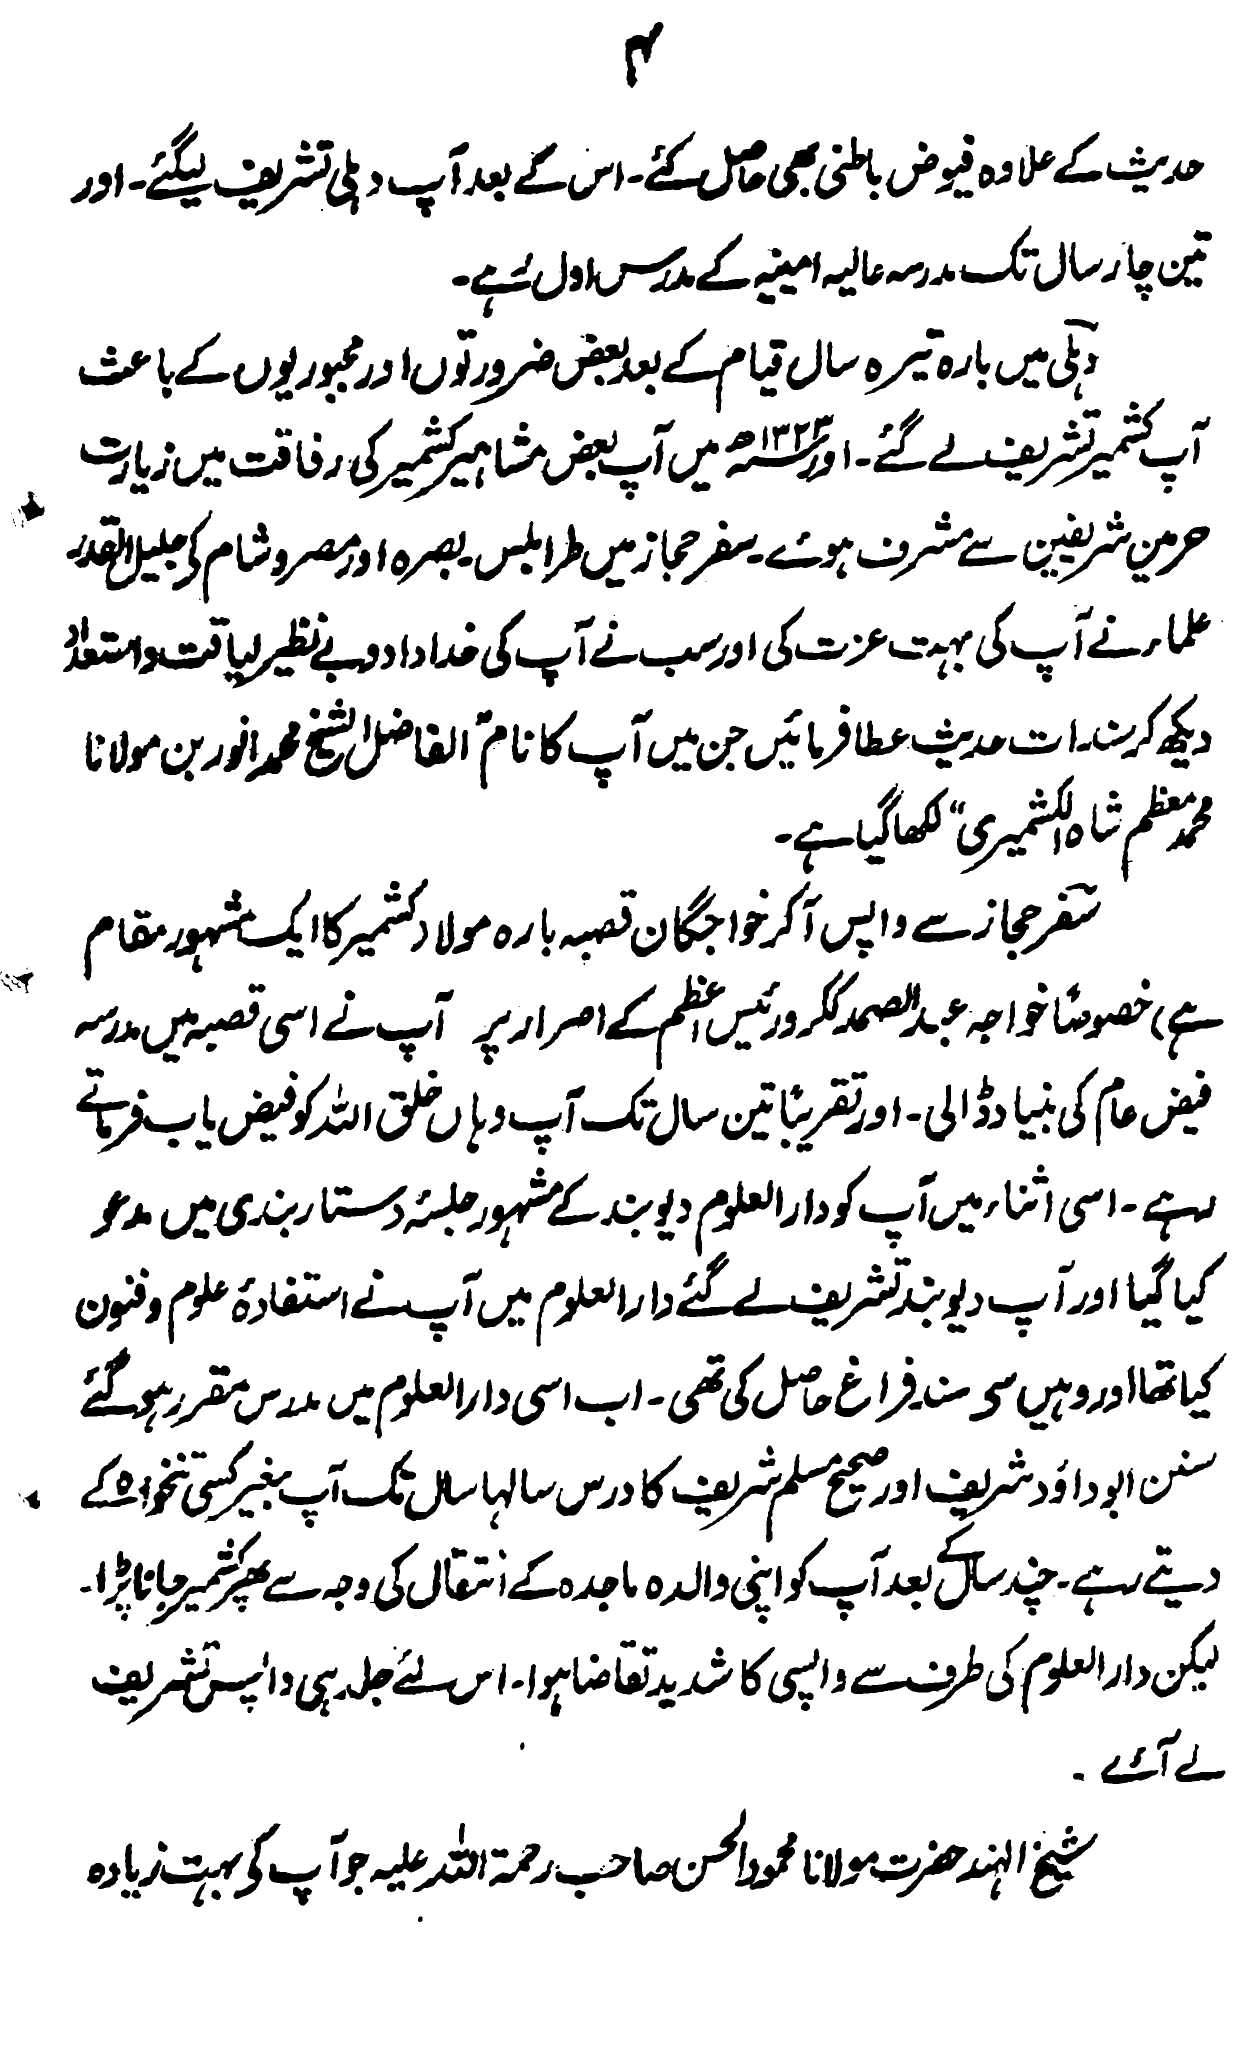 ۴
حدیث کے علاوہ فیوض باطنی بھی حاصل کئے۔ اس کے بعد آپ دہلی تشریف لیگئے۔ اور
تین چار سال تک مدرسہ عالیہ امینیہ کے مدرس اول رہے۔
دہلی میں بارہ تیرہ سال قیام کے بعد بعض ضرورتوں اور مجبوریوں کے باعث
آپ کشمیر تشریف لے گئے۔ اور ۱۳۲۳ھ میں آپ بعض مشاہیر کشمیر کی رفاقت میں زیارت
حرمین شریفین سے مشرف ہوئے۔ سفر حجاز میں طرابلس۔ بصرہ اور مصر و شام کی جلیل القدر
علماء نے آپ کی بہت عزت کی اور سب نے آپ کی خداداد و بے نظیر لیاقت و استعداد
دیکھ کر سندات حدیث عطا فرمائیں جن میں آپ کا نام "الفاضل الشیخ محمد انور بن مولانا
محمد معظم شاہ الکشمیری" لکھا گیا ہے۔
سفر حجاز سے واپس آکر خواجگان قصبہ بارہ مولا (کشمیر کا ایک مشہور مقام
ہے) خصوصًا خواجہ عبد الصمد ککرو رئیس اعظم کے اصرار پر آپ نے اسی قصبہ میں مدرسہ
فیض عام کی بنیاد ڈالی۔ اور تقریبًا تین سال تک آپ وہاں خلق اللہ کو فیض یاب فرماتے
رہے۔ اسی اثناء میں آپ کو دار العلوم دیوبند کے مشہور جلسۂ دستار بندی میں مدعو
کیا گیا اور آپ دیوبند تشریف لے گئے دار العلوم میں آپ نے استفادۂ علوم و فنون
کیا تھا اور وہیں سے سند فراغ حاصل کی تھی۔ اب اسی دار العلوم میں مدرس مقرر ہو گئے
سنن ابو داؤد شریف اور صحیح مسلم شریف کا درس سالہا سال تک آپ بغیر کسی تنخواہ کے
دیتے رہے۔ چند سال کے بعد آپ کو اپنی والدہ ماجدہ کے انتقال کی وجہ سے پھر کشمیر جانا پڑا۔
لیکن دار العلوم کی طرف سے واپسی کا شدید تقاضا ہوا۔ اس لئے جلد ہی واپس تشریف
لے آئے۔
شیخ الہند حضرت مولانا محمود الحسن صاحب رحمۃ اللہ علیہ جو آپ کی بہت زیادہ